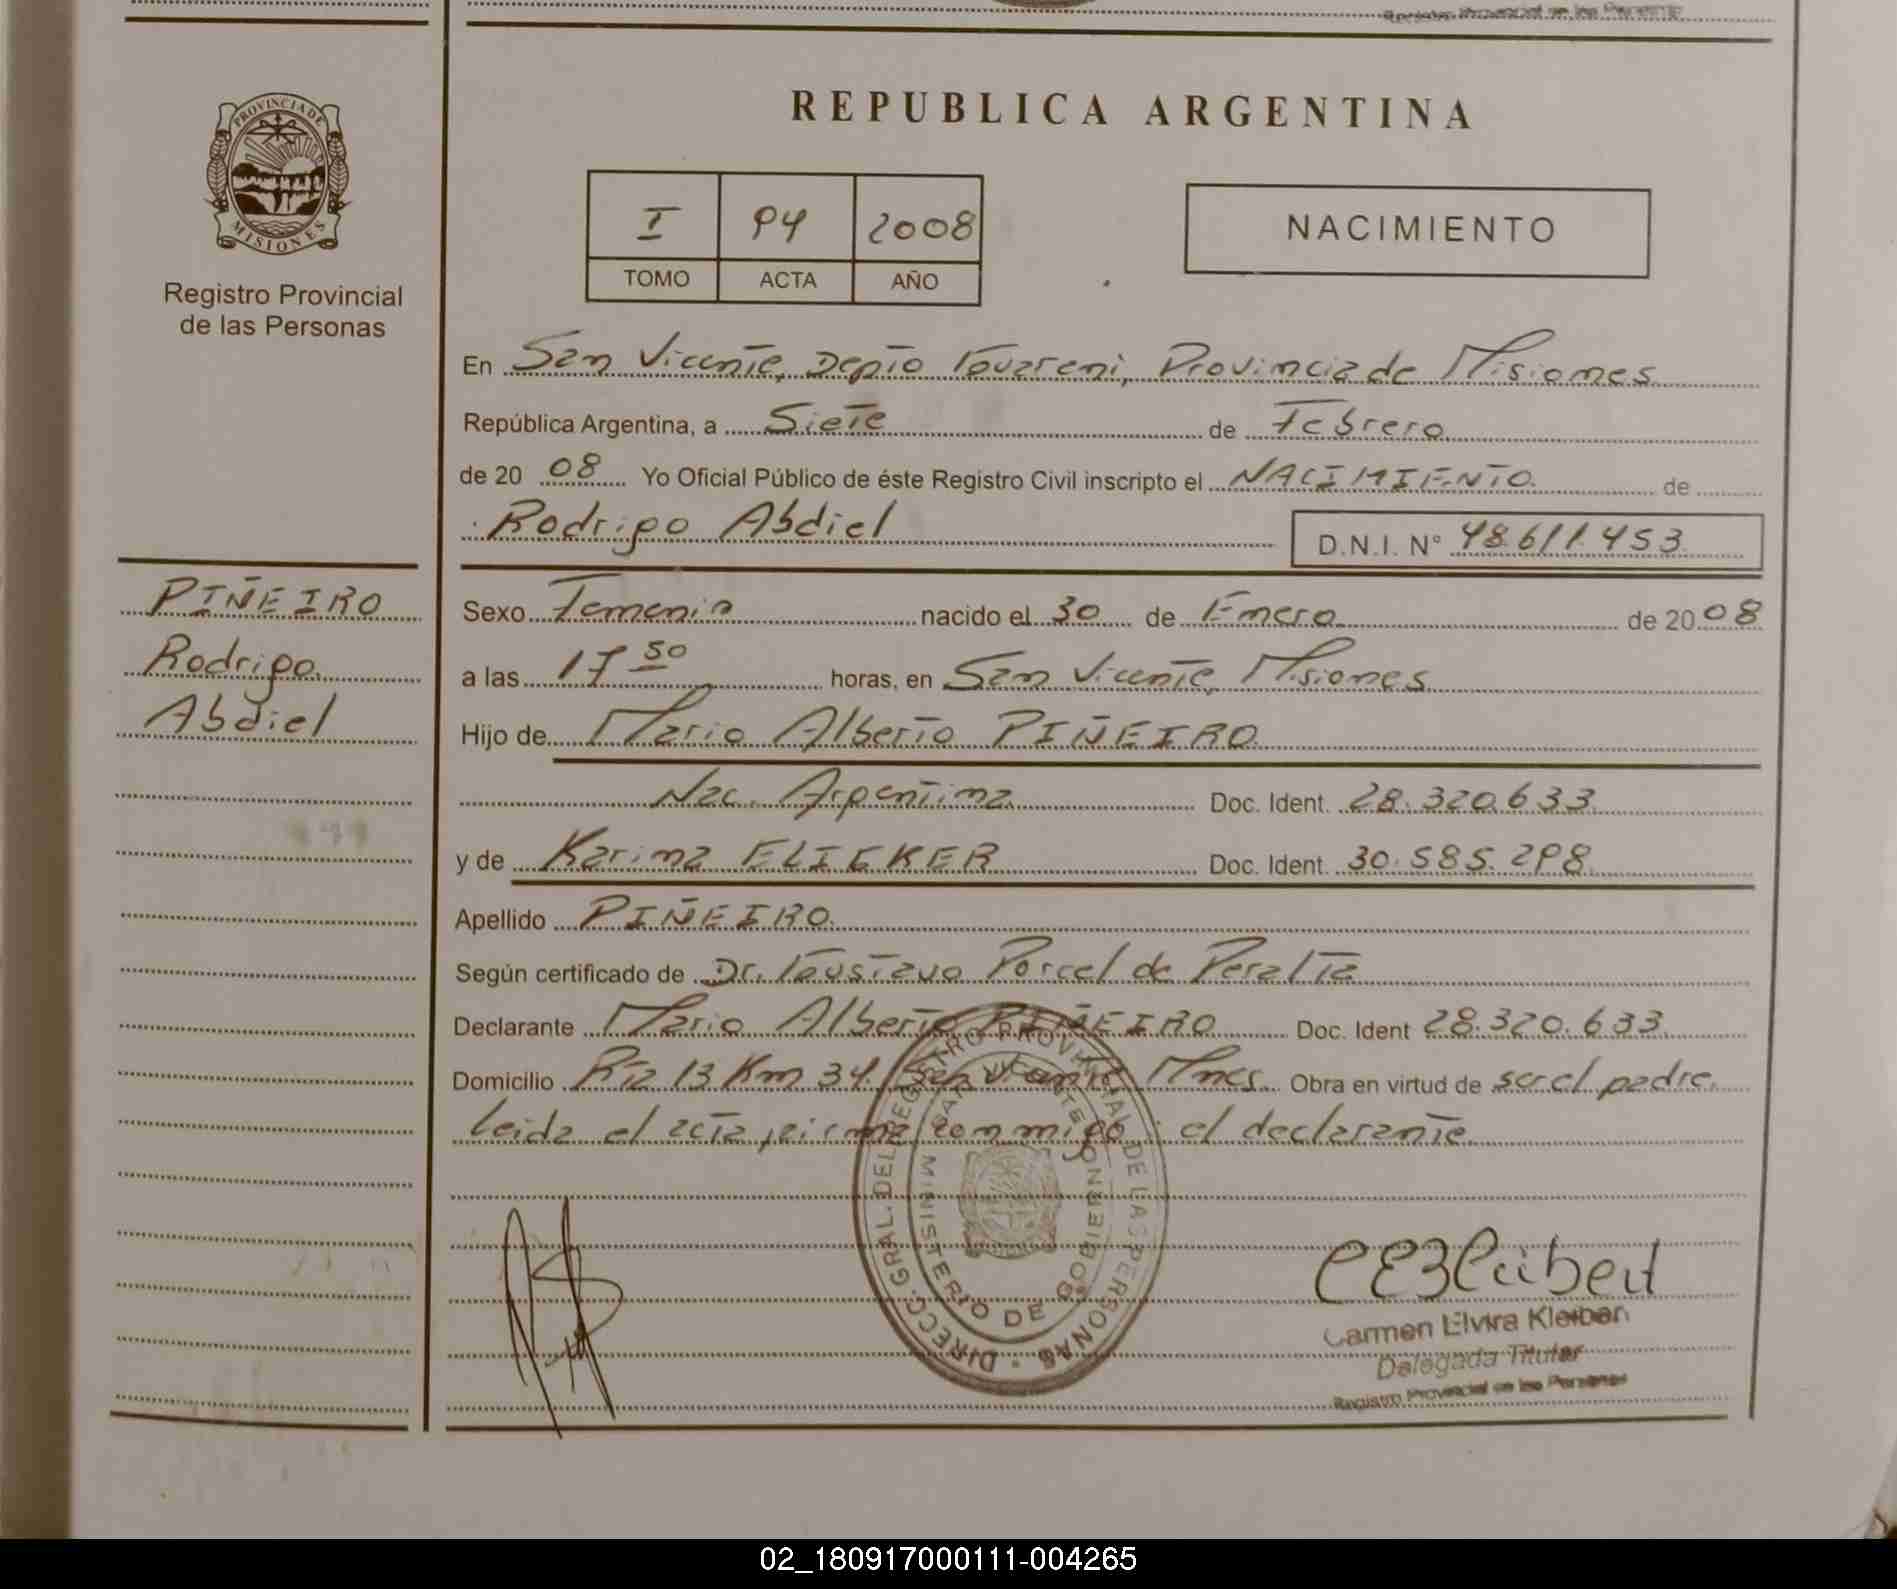 Registro Provincial de las Personas
PROVINCIA DE
MISIONES
Registro Provincial
de las Personas
REPUBLICA ARGENTINA
I 94 2008
TOMO ACTA AÑO
NACIMIENTO
En San Vicente, Depto Guarani, Provincia de Misiones
República Argentina, a Siete de Febrero
de 20 08 Yo Oficial Público de éste Registro Civil inscripto el NACIMIENTO de
Rodrigo Abdiel D.N.I. N° 48.611.453
PIÑEIRO
Rodrigo
Abdiel
Sexo Femenin nacido el 30 de Enero de 20 08
a las 17 50 horas, en San Vicente, Misiones
Hijo de Mario Alberto PIÑEIRO
Nac. Argentina Doc. Ident. 28.320.633
y de Karina ELIGKER Doc. Ident. 30.585.298
Apellido PIÑEIRO
Según certificado de Dr. Gustavo Porcel de Peralta
Declarante Mario Alberto PIÑEIRO Doc. Ident 28.320.633
Domicilio Rta 13 Km 34. San Vicente Mnes. Obra en virtud de ser el padre.
Leida el acta, firma conmigo: el declarante
DIRECC. GRAL. DEL REGISTRO PROVINCIAL DE LAS PERSONAS
SAN VICENTE
MINISTERIO DE GOBIERNO
Carmen Elvira Kleiben
Delegada Titular
Registro Provincial de las Personas
02_180917000111-004265